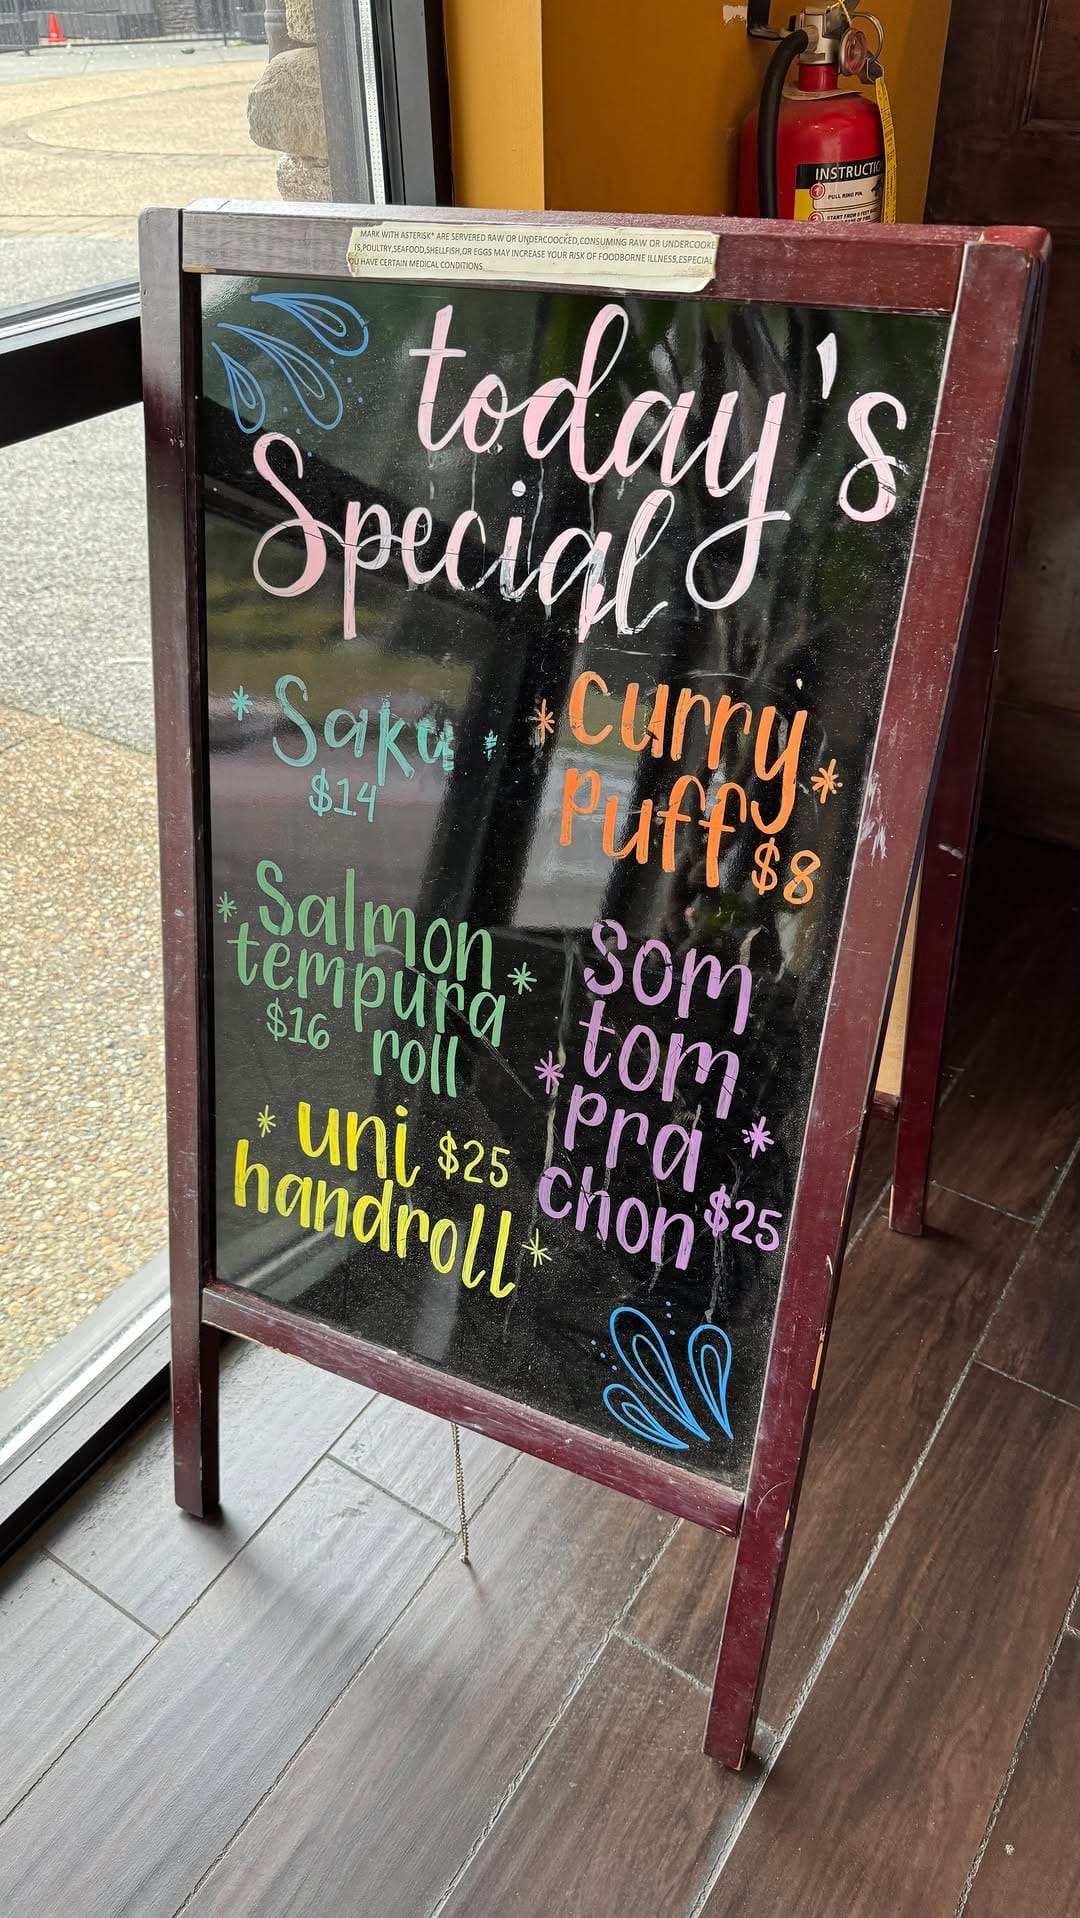 INSTRUCTIO
PULL RING PIN.
MARK WITH ASTERISK* ARE SERVERED RAW OR UNDERCOOCKED,CONSUMING RAW OR UNDERCOOKE
TS,POULTRY,SEAFOOD,SHELLFISH,OR EGGS MAY INCREASE YOUR RISK OF FOODBORNE ILLNESS,ESPECIAL
OU HAVE CERTAIN MEDICAL CONDITIONS
today's
Special
* Saku *
$14
* curry
puff *
$8
* Salmon
tempura *
$16 roll
* uni $25
handroll *
som
tom
* pra *
chon $25